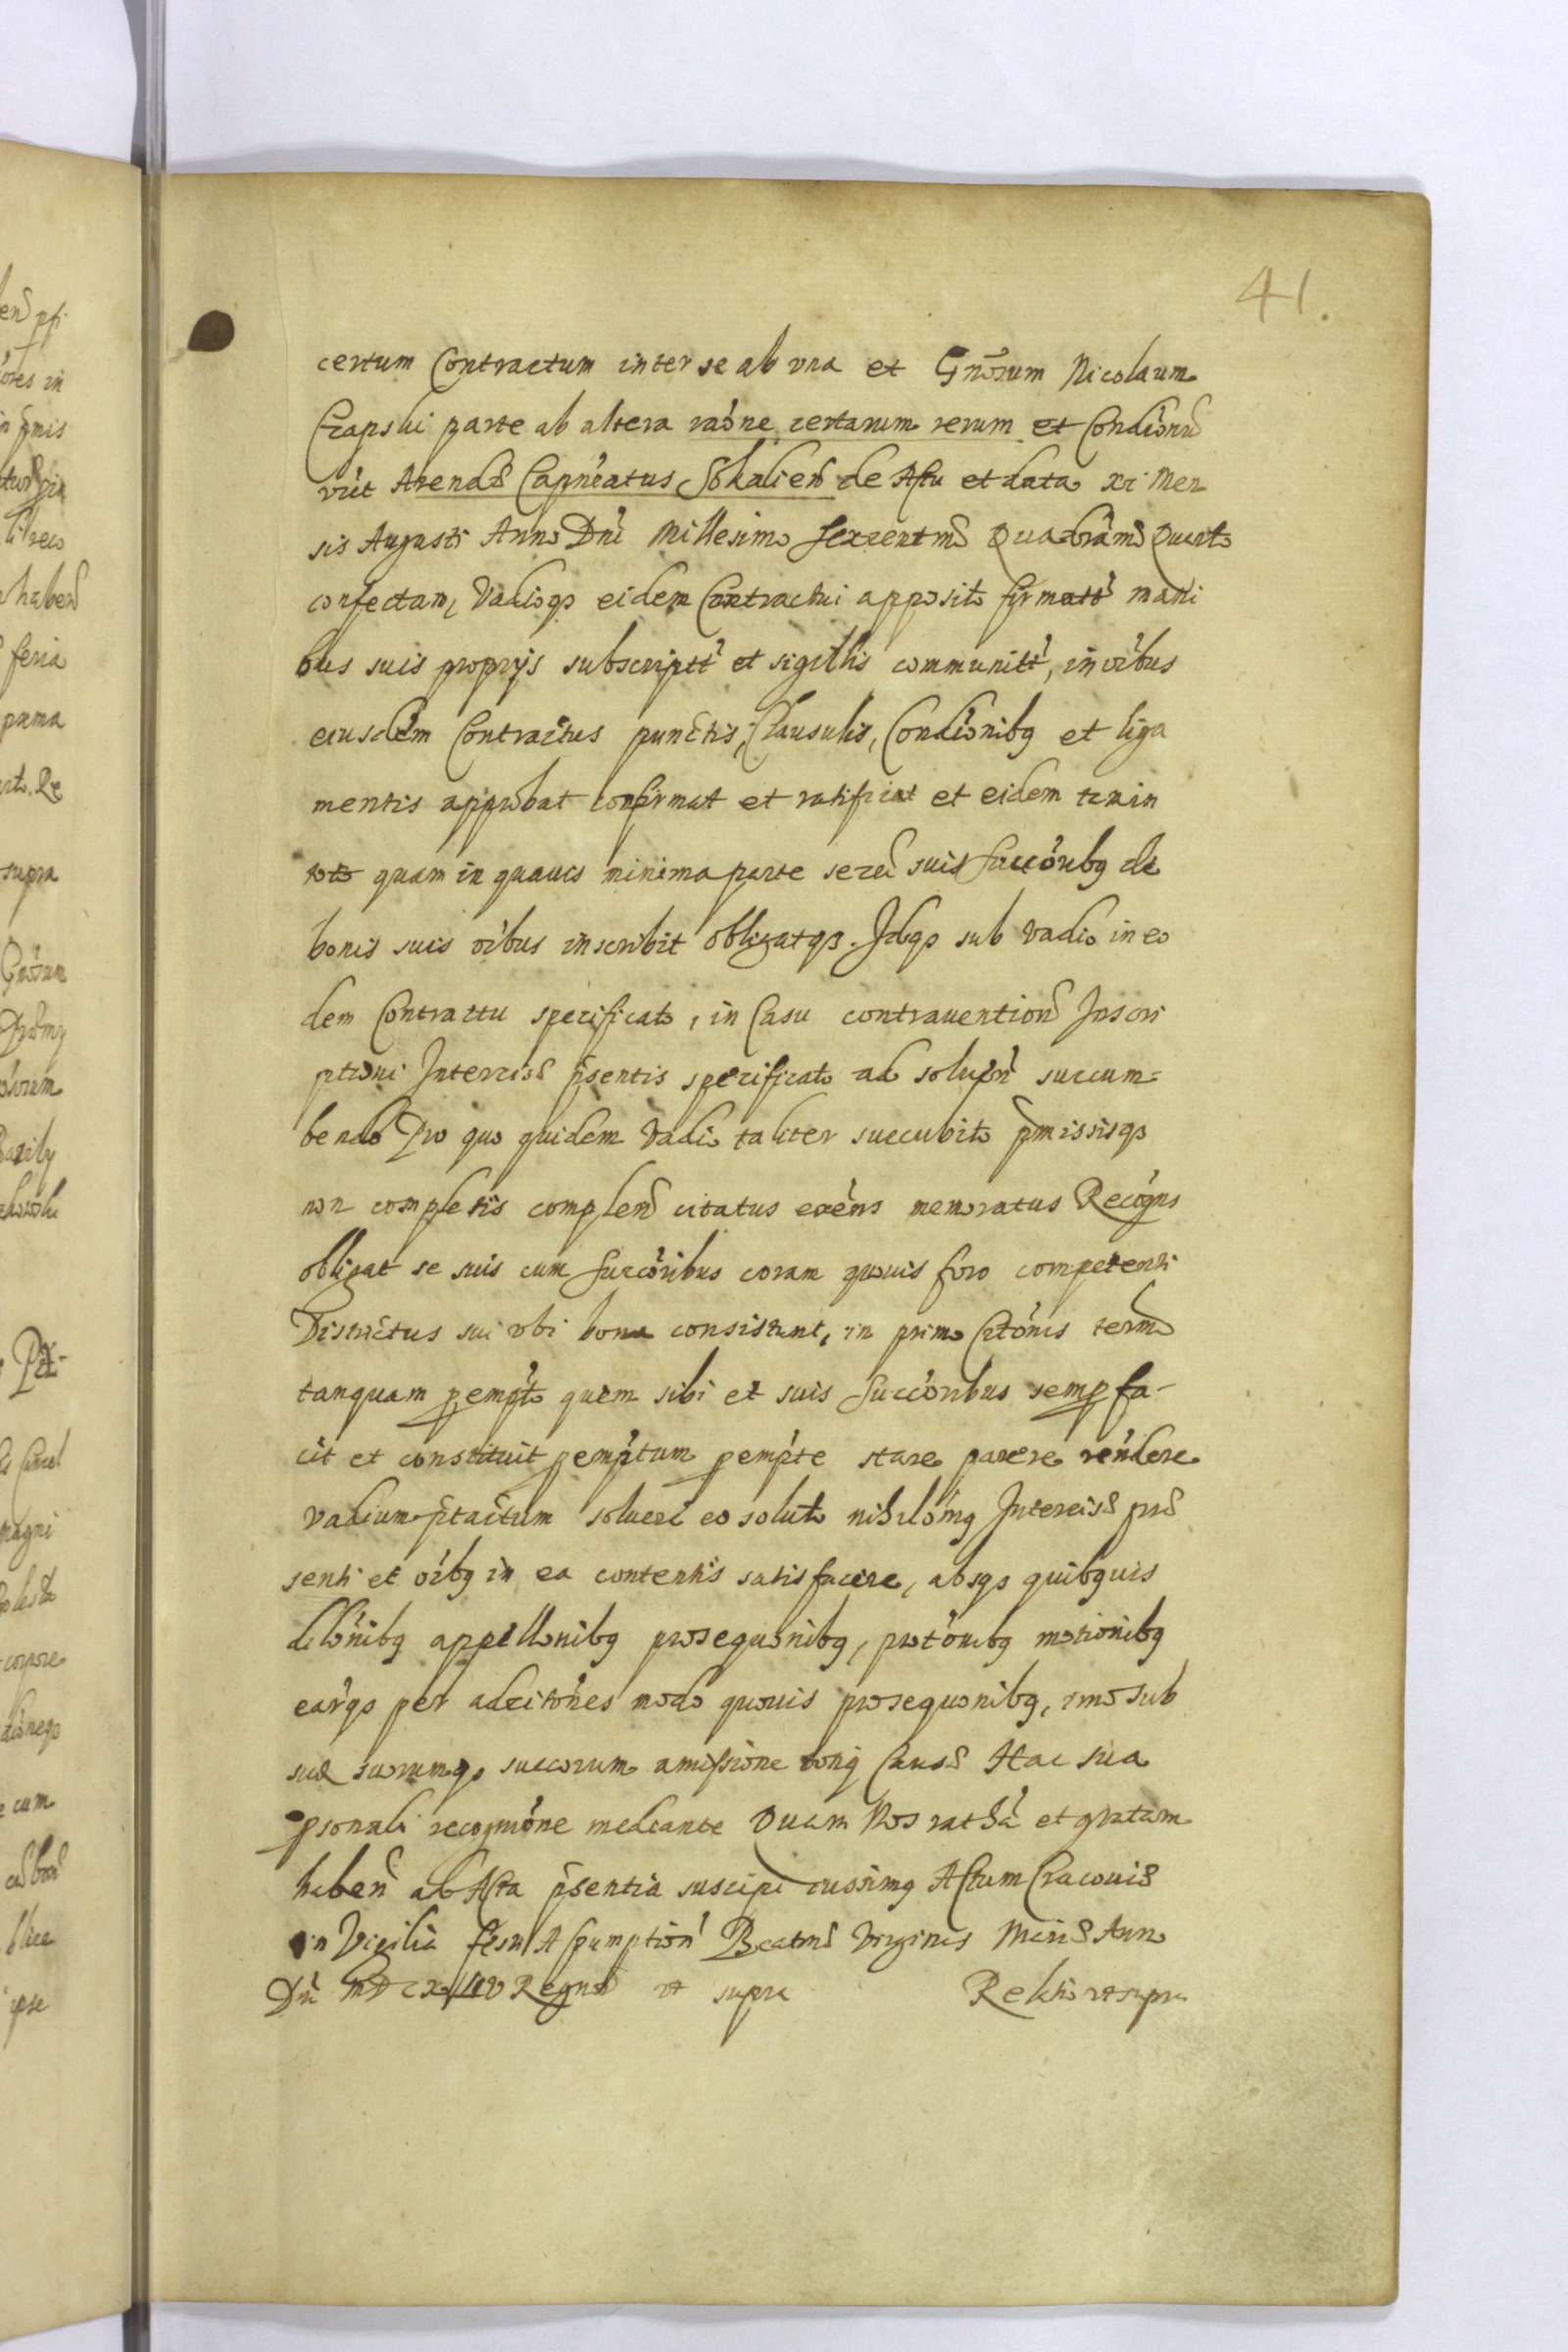 41.
certum Contractum inter se ab vna et Gnosum Nicolaum
Czapski parte ab altera raone certarum rerum et Condionũ
vút Arendæ Capneatus Sokalien de Actu et data xi Men
sis Augusti Anno Dni Millesimo Sexcentmo Quadramo Quarto
confectam, Vadioqз eidem Contractui apposito firmatt mani
bus suis proprijs subscriptt et sigillis communitt, in oibus
eiusdem Contractus punctis, Clausulis, Condionibq et liga
mentis approbat confirmat et ratificat et eidem tam in
toto quam in quauis minima parte sese suis Succoribq de
bonis suis oibus inscribit obligatqз. Idqз sub vadio in eo
dem Contractu specificato, in Casu contrauention Inscri
ptioni Intercisæ pñsentis specificato ad soluen succum=
bendo Pro quo quidem Vadio taliter succubito pmissisqз
non completis complen citatus exens memoratus Recogns
obligat se suis cum Succoribus coram quouis foro competenti
Districtus sui vbi bona consistunt, in primo Citonis termo
tanquam pempto quem sibi et suis Succoribus semp fa-
cit et constituit pemptum pempte stare parere rendere
vadium ptactum soluere eo soluto nihilomq Intercisæ præ
senti et oibq in ea contentis satisfacere, absqз quibquis
dilonibq appellonibq prosequonibq, protonibq motionibq
earqз per adcitones modo quouis prosequonibq, imo sub
sua suorumqз succorum amissione totiq Causæ Hac sua
psonali recognione mediante Quam Nos ratha et gratam
haben ab Acta pñsentia suscipi iussimq Actum Cracouiæ
in Vigilia festi Assumption Beatmæ Virginis Mariæ Anno
Dni MDCXLIV Regnoᷤ vt supra Relatio vt supra